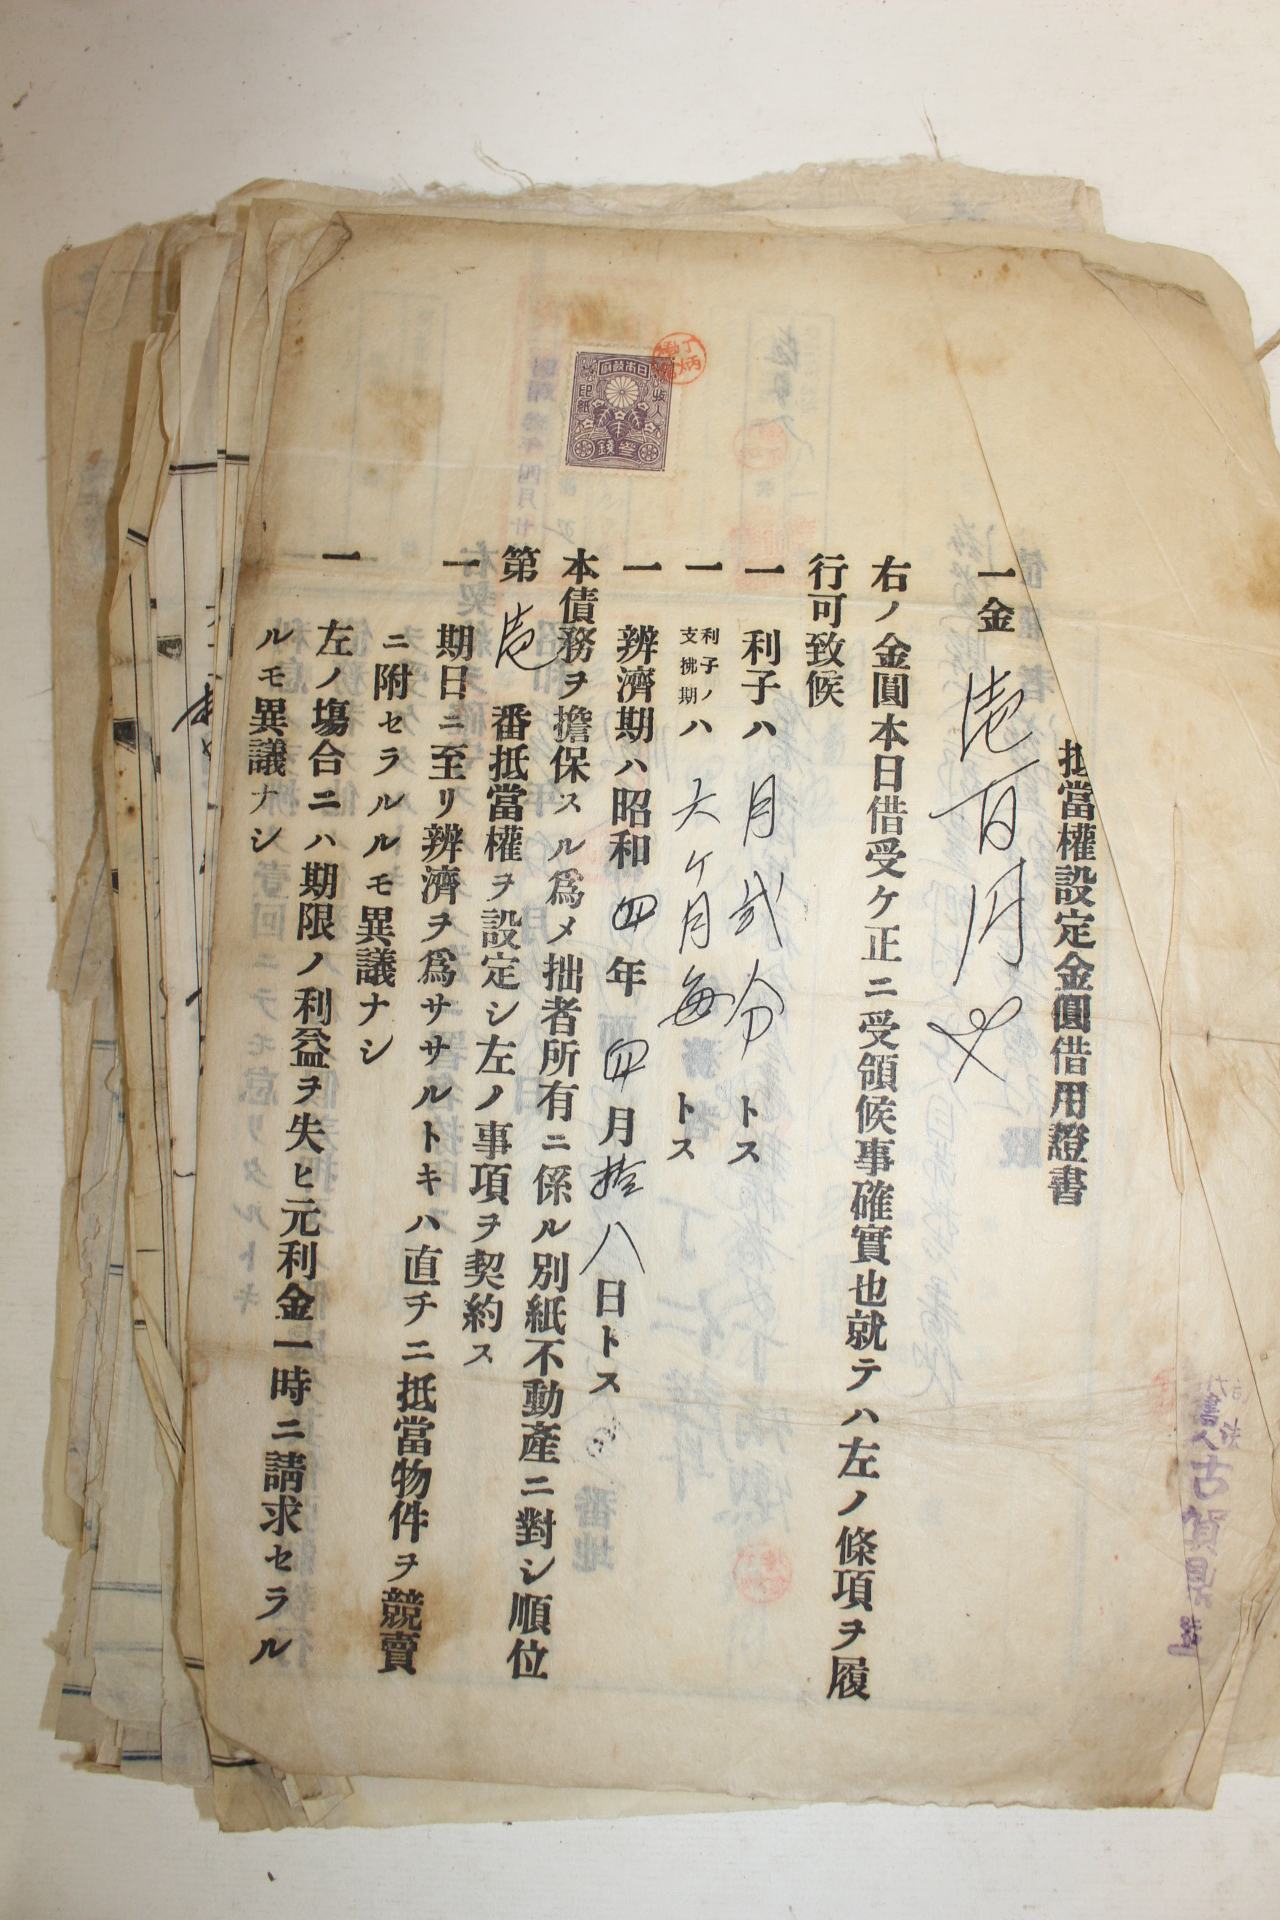 抵當權設定金圓借用證書
一金 壱百円也
右ノ金圓本日借受ケ正ニ受領候事確實也就テハ左ノ條項ヲ履
行可致候
一 利子ハ 月弐分 トス
一 利子ノ支拂期ハ 六ヶ月毎 トス
一 辨濟期ハ昭和四年四月拾八日トス
本債務ヲ擔保スル爲メ拙者所有ニ係ル別紙不動産ニ對シ順位
第壱番抵當權ヲ設定シ左ノ事項ヲ契約ス
一 期日ニ至リ辨濟ヲ爲ササルトキハ直チニ抵當物件ヲ競賣
ニ附セラルルモ異議ナシ
一 左ノ塲合ニハ期限ノ利益ヲ失ヒ元利金一時ニ請求セラル
ルモ異議ナシ
日本政府
收入
印紙
參錢
司法
代書人古賀